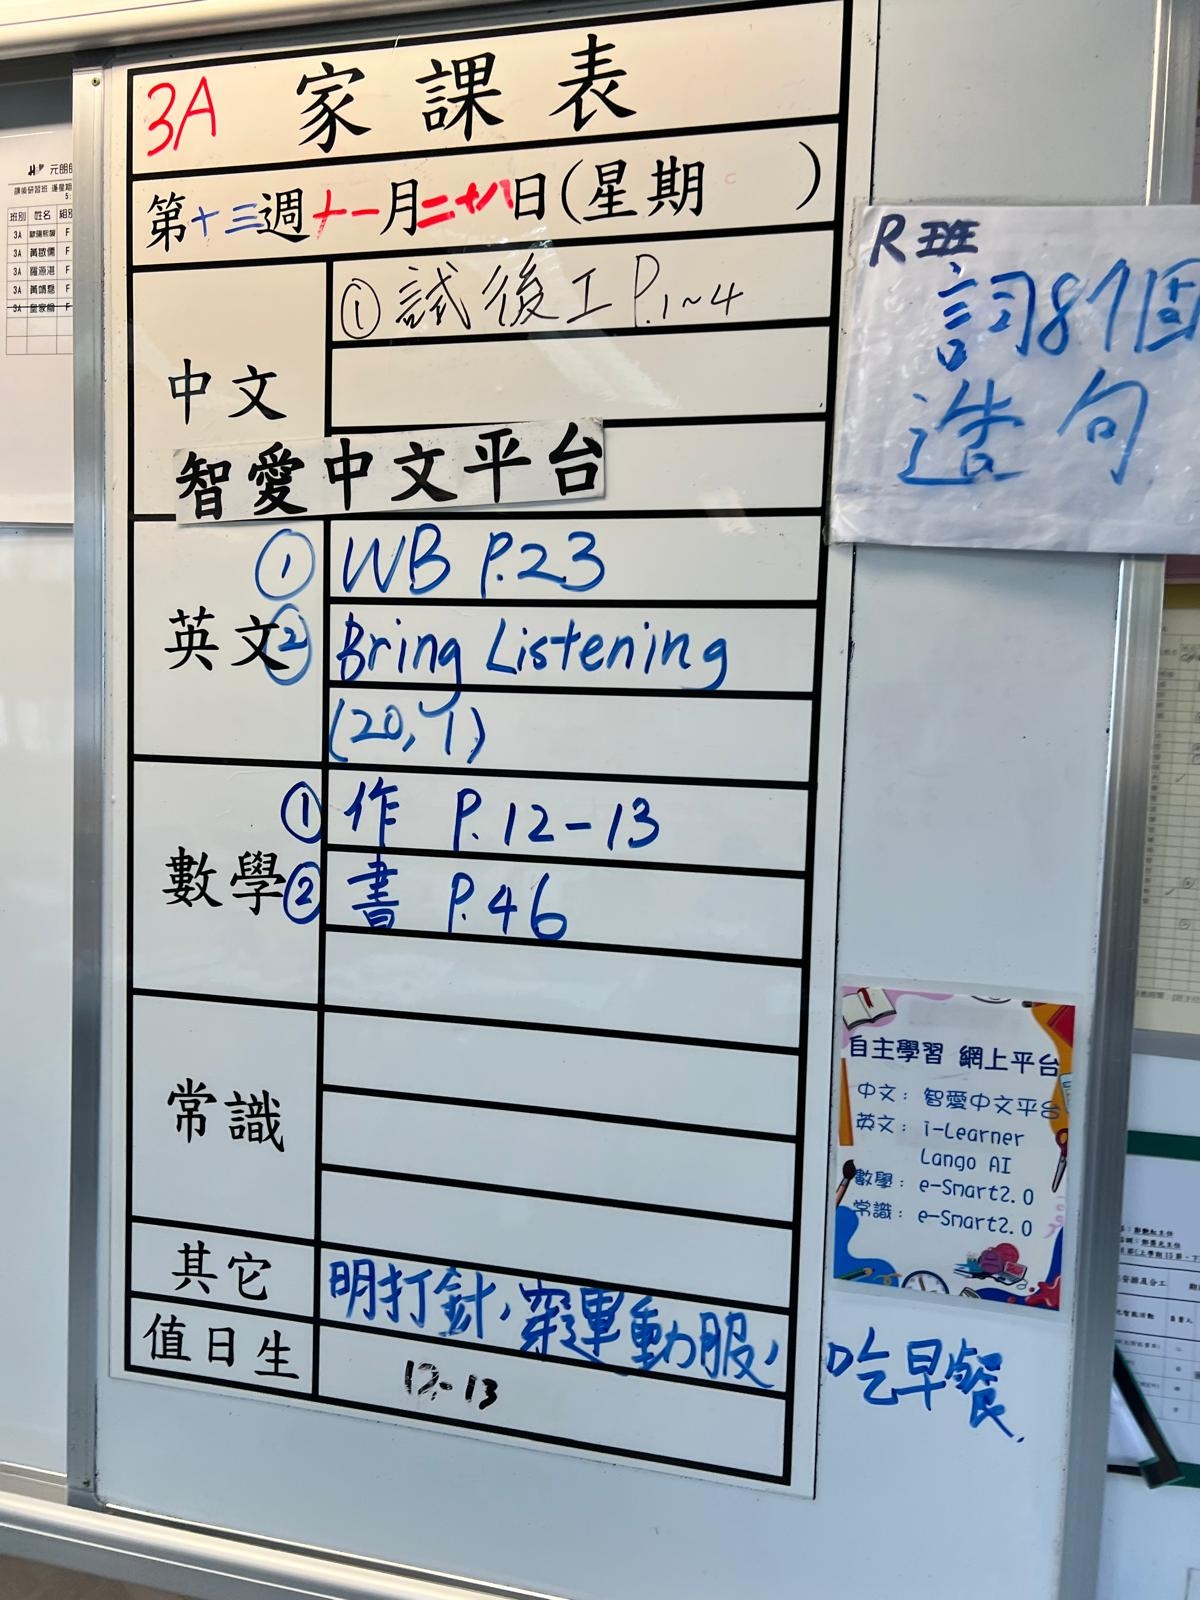 3A 家課表
第十三週十一月二十八日(星期 )
中文
①試後工P.1~4
智愛中文平台
英文
① WB P.23
② Bring Listening
(20,1)
數學
① 作 P.12-13
② 書 P.46
常識
其它
明打針，穿運動服，吃早餐.
值日生
12-13
R班
造句
自主學習 網上平台
中文: 智愛中文平台
英文: i-Learner
Lango AI
數學: e-Smart2.0
常識: e-Smart2.0
班別 姓名 組別
3A F
3A 黃敬儒 F
3A F
3A F
3A F